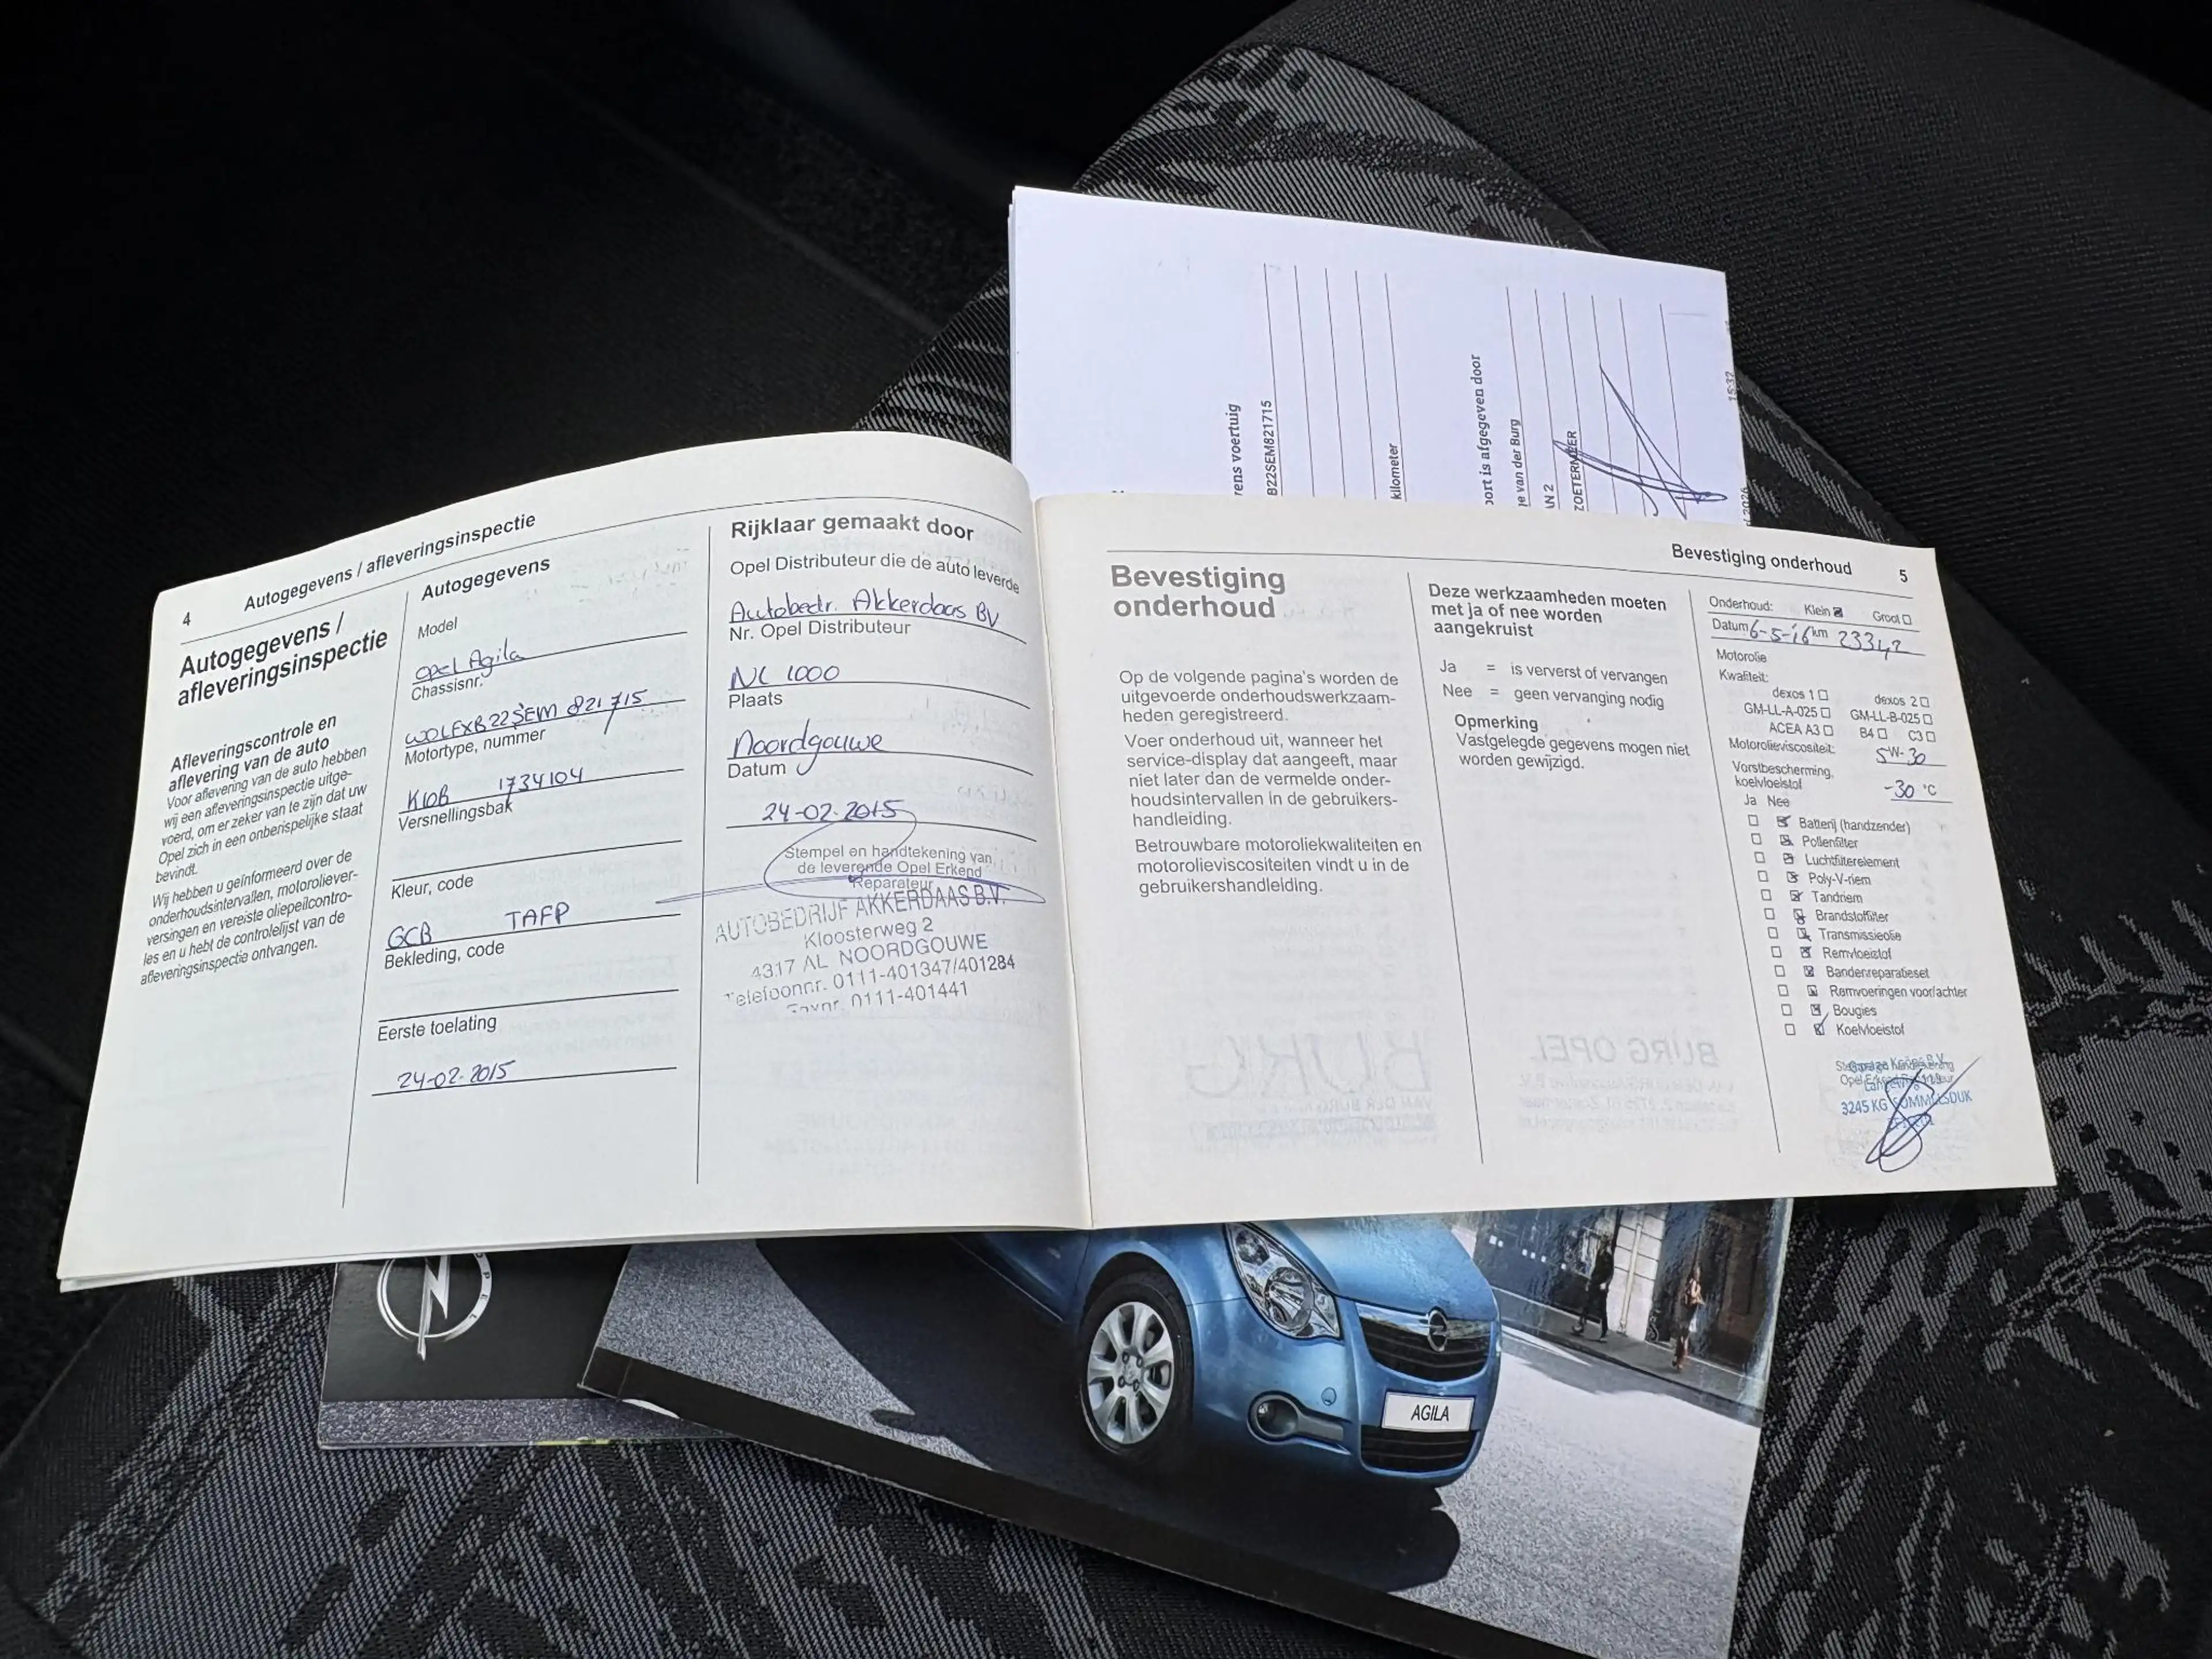 4
Autogegevens / afleveringsinspectie
Autogegevens /
afleveringsinspectie
Afleveringscontrole en
aflevering van de auto
Voor aflevering van de auto hebben
wij een afleveringsinspectie uitge-
voerd, om er zeker van te zijn dat uw
Opel zich in een onberispelijke staat
bevindt.
Wij hebben u geïnformeerd over de
onderhoudsintervallen, motoroliever-
versingen en vereiste oliepeilcontro-
les en u hebt de controlelijst van de
afleveringsinspectie ontvangen.
Autogegevens
Model
Opel Agila
Chassisnr.
W0LEXB22SEM 821715
Motortype, nummer
K10B 1734104
Versnellingsbak
Kleur, code
GCB TAFP
Bekleding, code
Eerste toelating
24-02-2015
Rijklaar gemaakt door
Opel Distributeur die de auto leverde
Autobedr. Akkerdaas BV
Nr. Opel Distributeur
NL 1000
Plaats
Noordgouwe
Datum
24-02-2015
Stempel en handtekening van
de leverende Opel Erkend
Reparateur
AUTOBEDRIJF AKKERDAAS B.V.
Kloosterweg 2
4317 AL NOORDGOUWE
Telefoonnr. 0111-401347/401284
Faxnr. 0111-401441
Bevestiging onderhoud
5
Bevestiging
onderhoud
Op de volgende pagina's worden de
uitgevoerde onderhoudswerkzaam-
heden geregistreerd.
Voer onderhoud uit, wanneer het
service-display dat aangeeft, maar
niet later dan de vermelde onder-
houdsintervallen in de gebruikers-
handleiding.
Betrouwbare motoroliekwaliteiten en
motorolieviscositeiten vindt u in de
gebruikershandleiding.
Deze werkzaamheden moeten
met ja of nee worden
aangekruist
Ja = is ververst of vervangen
Nee = geen vervanging nodig
Opmerking
Vastgelegde gegevens mogen niet
worden gewijzigd.
Onderhoud: Klein Groot
Datum 6-5-16 km 23342
Motorolie
Kwaliteit:
dexos 1 dexos 2
GM-LL-A-025 GM-LL-B-025
ACEA A3 B4 C3
Motorolieviscositeit: 5W-30
Vorstbescherming,
koelvloeistof -30 °C
Ja Nee
Batterij (handzender)
Pollenfilter
Luchtfilterelement
Poly-V-riem
Tandriem
Brandstoffilter
Transmissieolie
Remvloeistof
Bandenreparatieset
Remvoeringen voor/achter
Bougies
Koelvloeistof
3245 KG SOMMELSDIJK
rens voertuig
B22SEM821715
kilometer
port is afgegeven door
e van der Burg
AN 2
ZOETERMEER
15:32
OPEL
AGILA